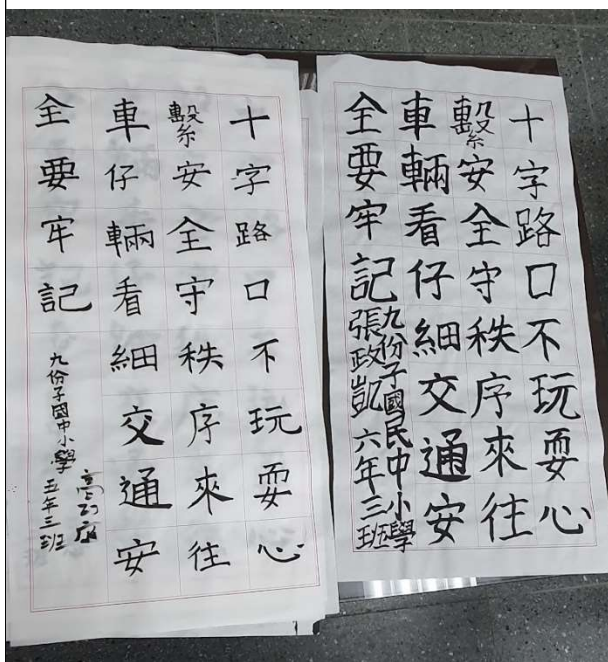 十字路口不玩耍心
繫安全守秩序來往
車輛看仔細交通安
全要牢記
九份子國民中小學
張政凱 六年三班
十字路口不玩耍心
繫安全守秩序來往
車仔輛看細交通安
全要牢記
九份子國中小學 五年三班